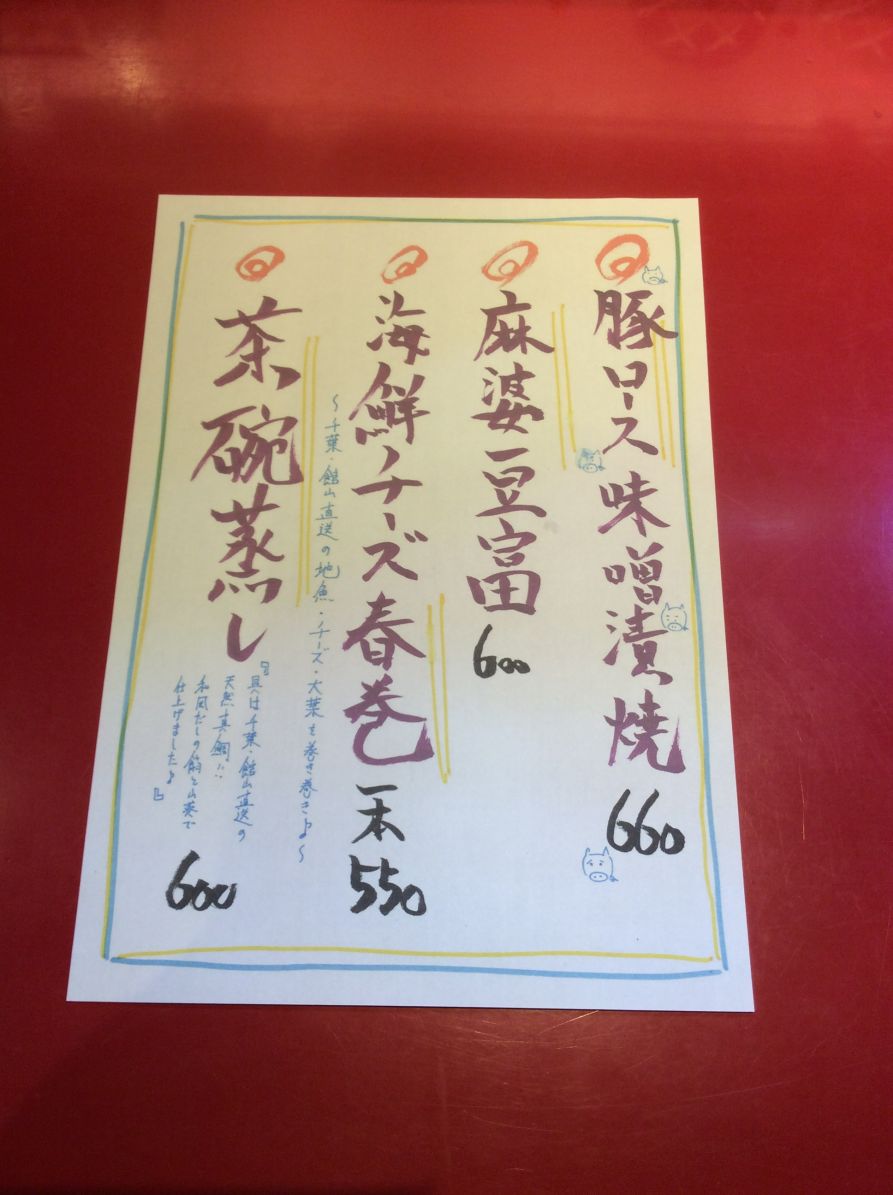 豚ロース味噌漬焼
660
麻婆豆富
600
海鮮チーズ春巻
一本
550
〜千葉・館山直送の地魚・チーズ・大葉を巻き巻き♪〜
茶碗蒸し
『具は千葉・館山直送の
天然真鯛に
和風だしの餡と山葵で
仕上げました♪』
600